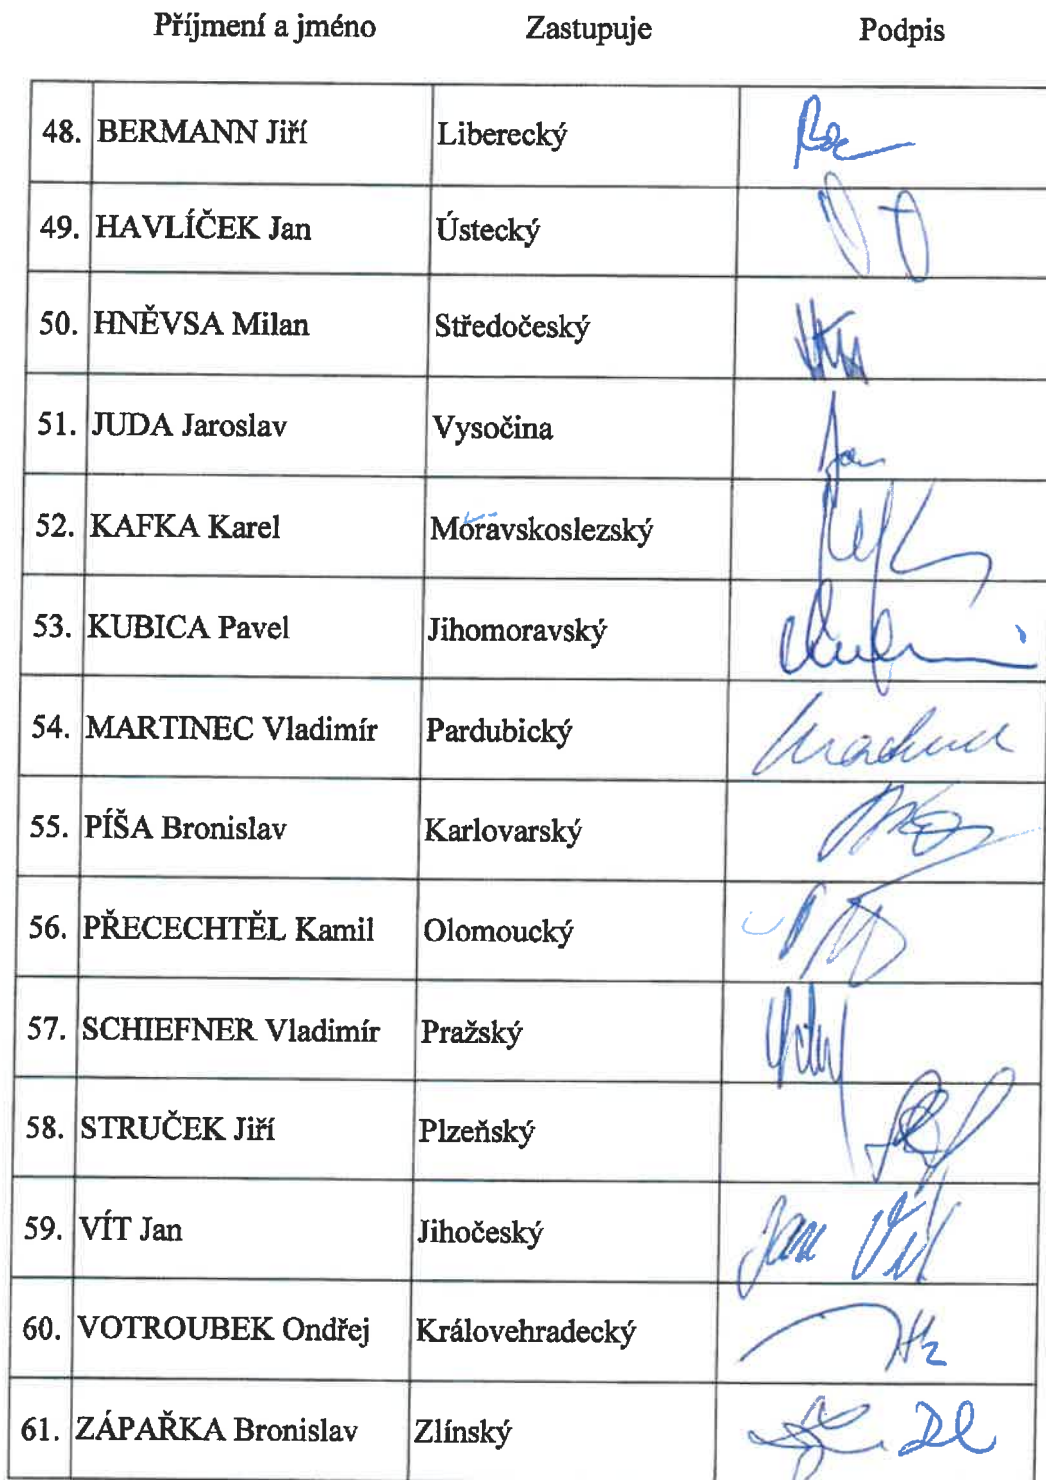 Příjmení a jméno Zastupuje Podpis
48. BERMANN Jiří Liberecký
49. HAVLÍČEK Jan Ústecký
50. HNĚVSA Milan Středočeský
51. JUDA Jaroslav Vysočina
52. KAFKA Karel Moravskoslezský
53. KUBICA Pavel Jihomoravský
54. MARTINEC Vladimír Pardubický
55. PÍŠA Bronislav Karlovarský
56. PŘECECHTĚL Kamil Olomoucký
57. SCHIEFNER Vladimír Pražský
58. STRUČEK Jiří Plzeňský
59. VÍT Jan Jihočeský Jan Vít
60. VOTROUBEK Ondřej Královehradecký
61. ZÁPAŘKA Bronislav Zlínský